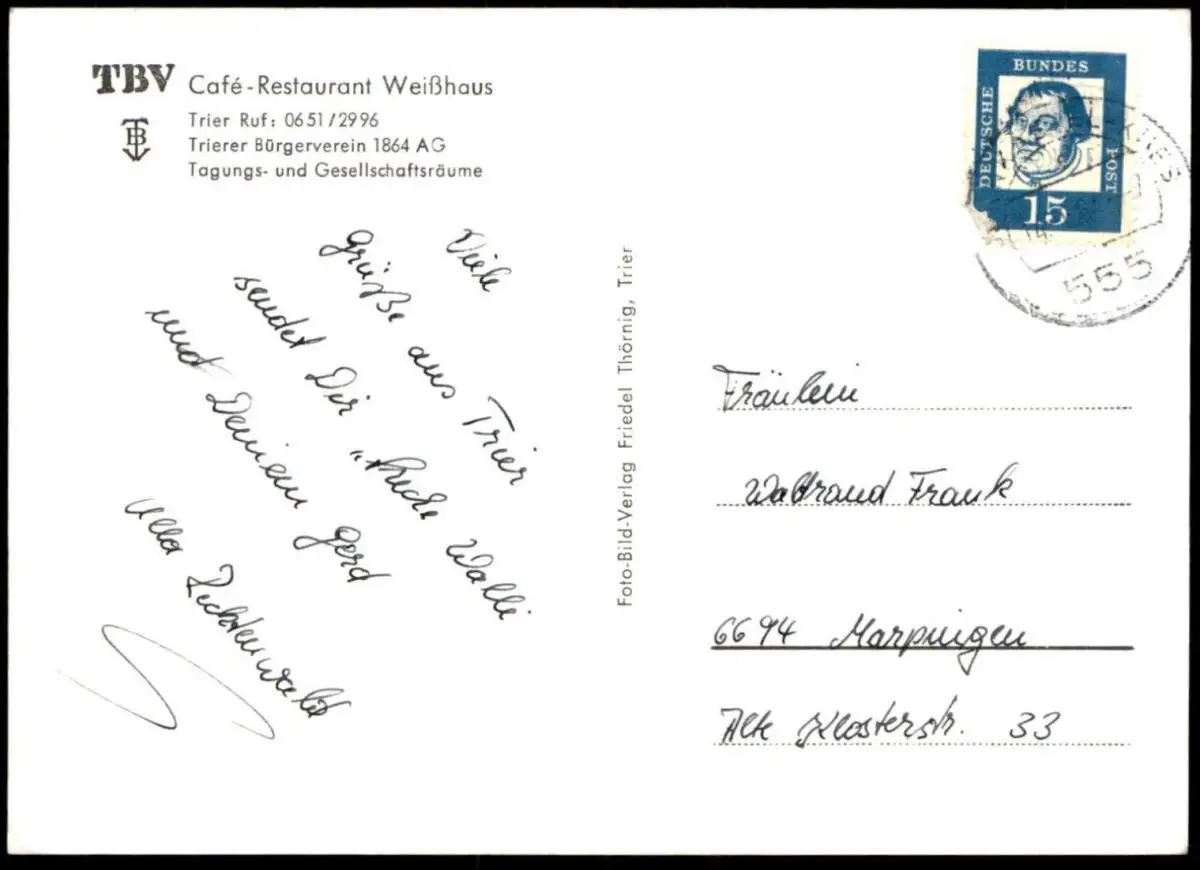 TBV Café-Restaurant Weißhaus
TB
Trier Ruf: 0651/2996
Trierer Bürgerverein 1864 AG
Tagungs- und Gesellschaftsräume
DEUTSCHE
BUNDES
POST
15
555
Viele
Grüße aus Trier
sendet Dir, Walli
und Deinem Gerd
Ulla
Foto-Bild-Verlag Friedel Thörnig, Trier
Fräulein
Waltraud Frank
6694 Marpingen
Alte Klosterstr. 33